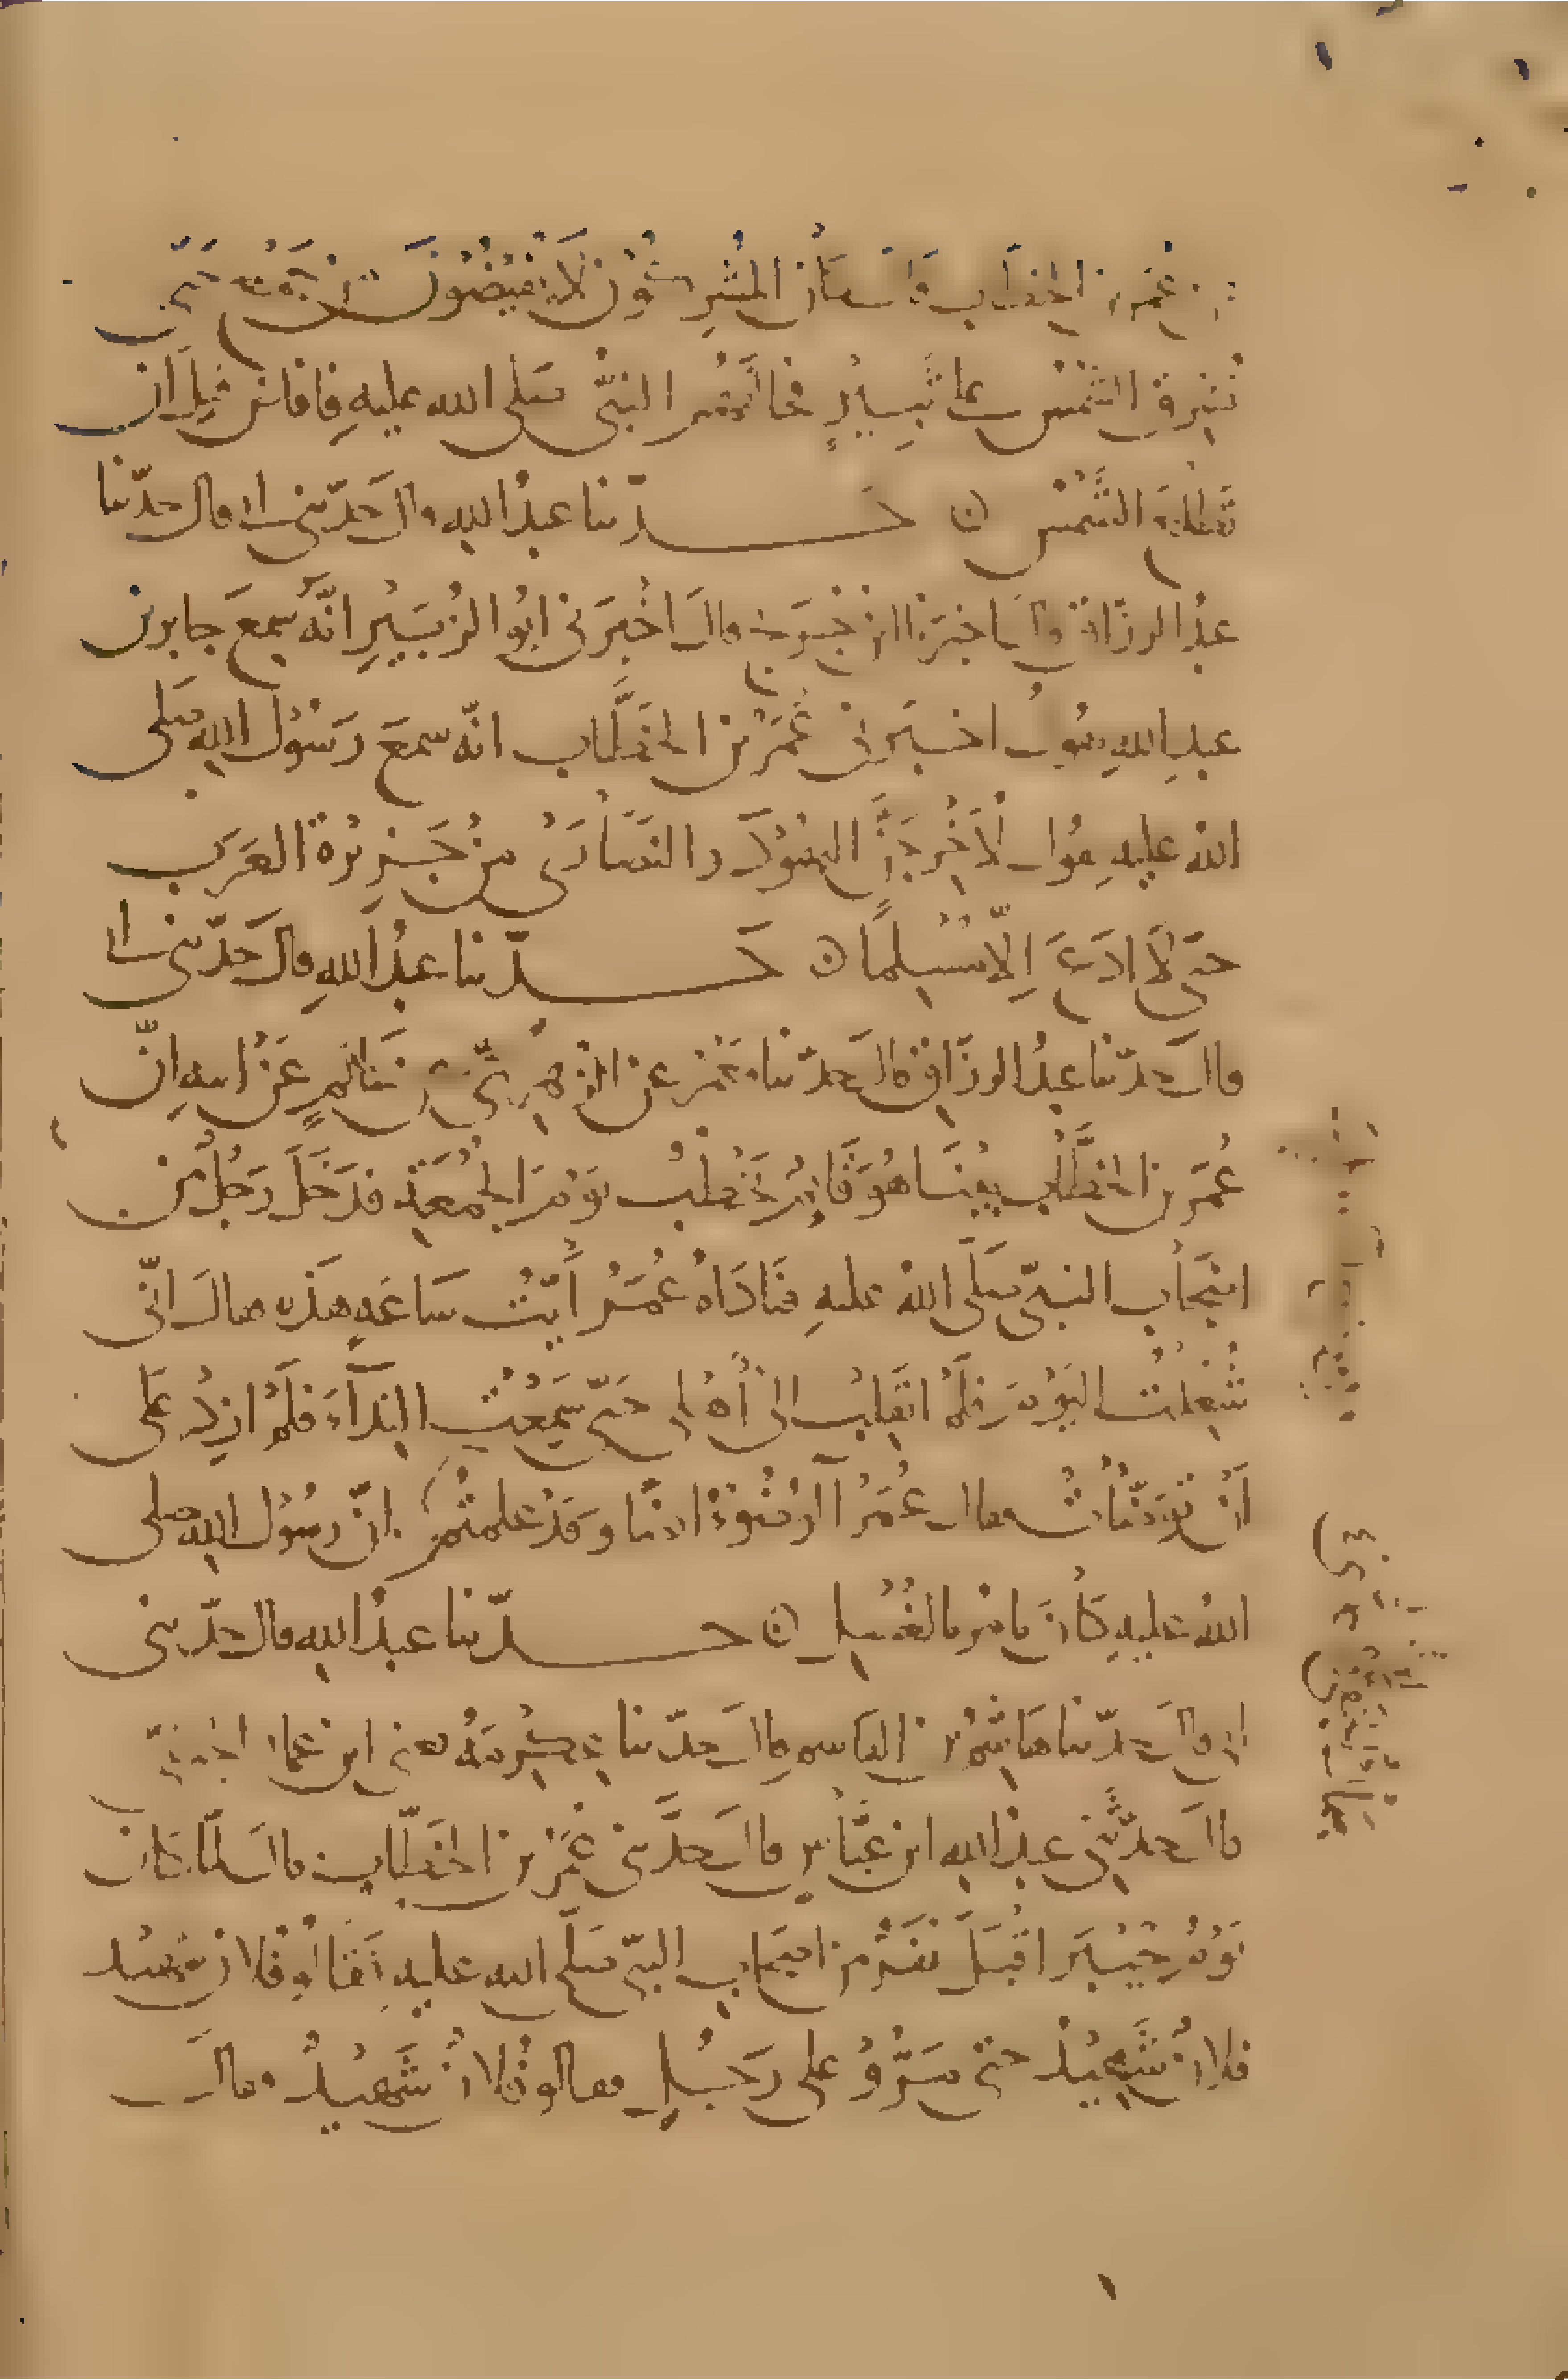 عُمَر بن الخطاب قال كان المشركون لا يفيضون من جمع حتى
تشرق الشمس على ثبير فخالفهم النبي صلى الله عليه فافاض قبل ان
تطلع الشمس ن حـــدّثنا عبدُ الله قال حَدّثني ابي قال حدّثنا
عبدُ الرزاق قال اخبرَنا ابن جُرَيج قالَ اخْبرَني ابُوا الزُبَيْرِ انّهُ سمعَ جابر بن
عبدِ اللهِ يقول اخبرني عُمَرُ بن الخطّاب انّه سمعَ رَسُوْل اللهِ صَلى
اللهُ عليهِ يقول لأُخْرجَنَّ اليهُوْدَ والنصَارَى منْ جَزِيْرةِ العَرَب
حتى لا ادَعَ اِلاّ مُسْلِمًا ن حَـــدّثنا عبدُ اللهِ قالَ حَدّثني ابي
قالَ حدّثنا عبدُ الرزّاقِ قالَ حدّثنا معْمَر عن الزهرِيّ عن سَالمٍ عَنْ ابيهِ انّ
عُمَر بن الخطَّابِ بيْنَا هُوَ قَايمٌ يَخْطُبُ يَوْمَ الجُمُعَةِ فدَخَلَ رَجُلٌ من
اصْحَابِ النبيّ صَلَّى اللهُ عليهِ فنَادَاهُ عُمَرُ أَيَّتُ سَاعَةٍ هَذه فقالَ انّي
شُغِلتُ اليَوْمَ فلَمْ انقَلِبْ الى أهلي حَتّى سَمِعْتُ النِدآءَ فلَمْ ازِدْ عَلى
اَنْ تَوَضّأْتُ فقال عُمَرُ الوُضُوْءَ ايضًا وقَدْ علمتُمْ انّ رسُوْل الله صلى
اللهُ عليهِ كَانَ يامُر بالغُسْلِ ن حـــدّثنا عبدُ اللهِ قال حدّثني
ابي قالَ حدّثنا هَاشمُ بن القاسم قالَ حدّثنا عِكْرِمَهُ يعني ابن عمار
قالَ حدّثَني عبدُ اللهِ ابن عَبّاسٍ قالَ حدَّثني عُمَرُ بن الخطّابِ قالَ لمّا كان
يَوْمُ خَيْبَرَ اقْبَلَ نفَرٌ من اصحَابِ النبيّ صَلَّى الله عليهِ فقالُو فلانٌ شهيْد
فلانٌ شَهِيْدٌ حتى مَرُّوْ على رَجُلٍ فقالو فُلانٌ شَهِيْدٌ فقالَ